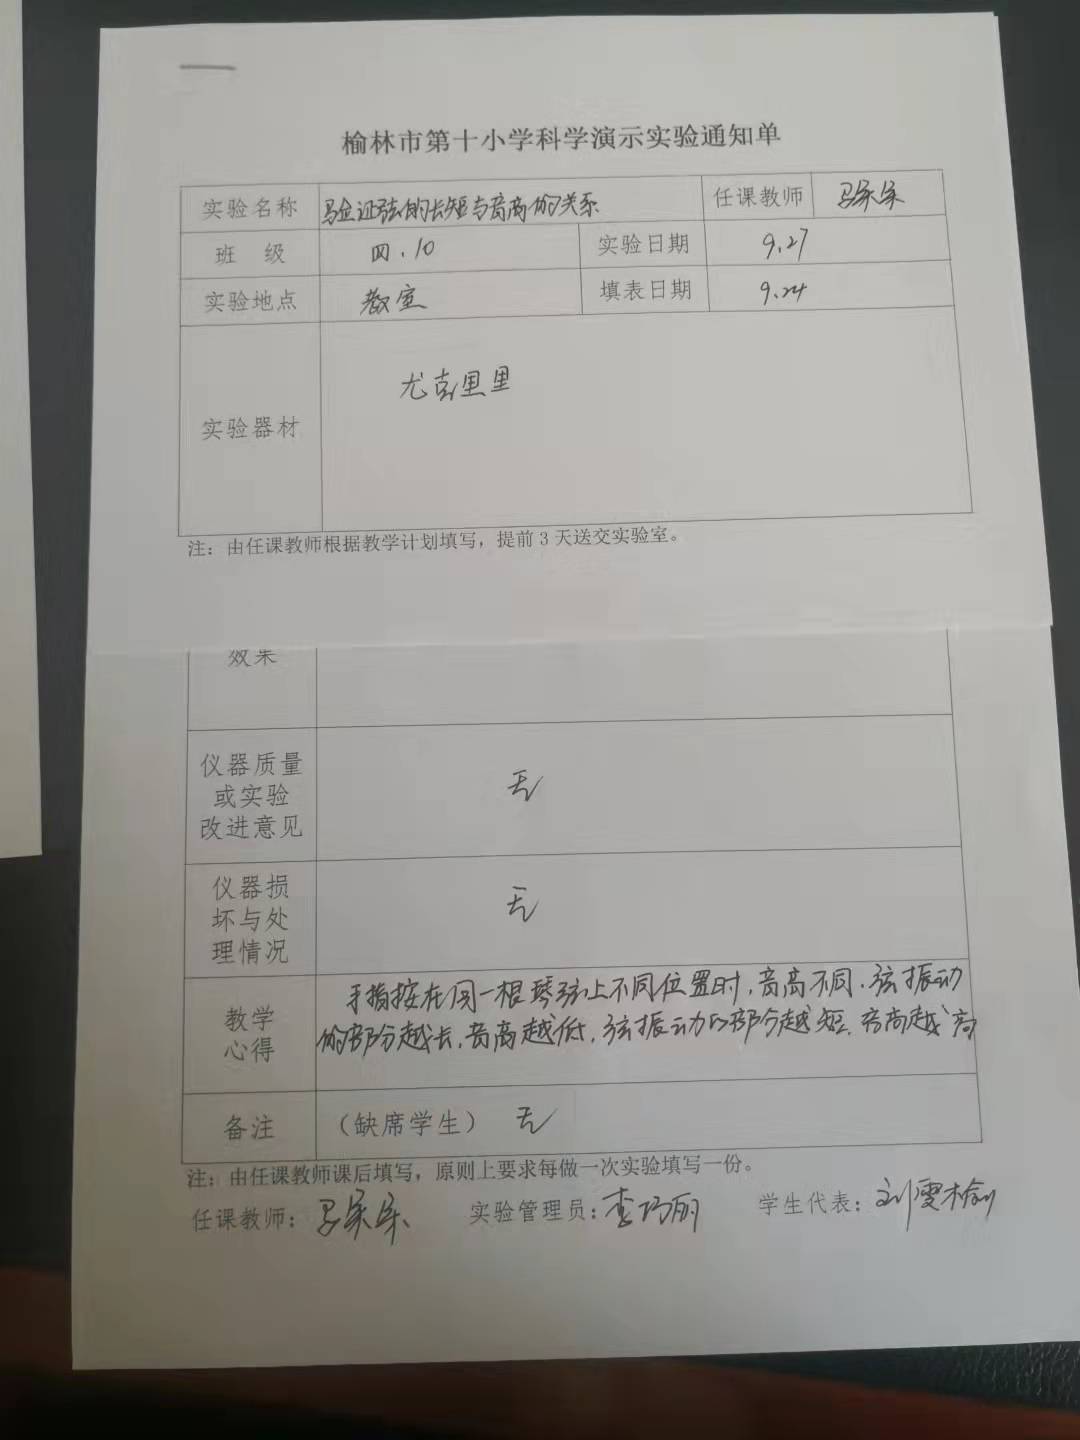 榆林市第十小学科学演示实验通知单
实验名称 验证弦的长短与音高的关系 任课教师
班 级 四.10 实验日期 9.27
实验地点 教室 填表日期 9.24
实验器材 尤克里里
注：由任课教师根据教学计划填写，提前3天送交实验室。
效果
仪器质量
或实验
改进意见
无
仪器损
坏与处
理情况
无
教学
心得
手指按在同一根琴弦上不同位置时，音高不同.弦振动
的部分越长，音高越低，弦振动的部分越短，音高越高
备注 （缺席学生） 无
注：由任课教师课后填写，原则上要求每做一次实验填写一份。
任课教师： 实验管理员：李巧丽 学生代表：